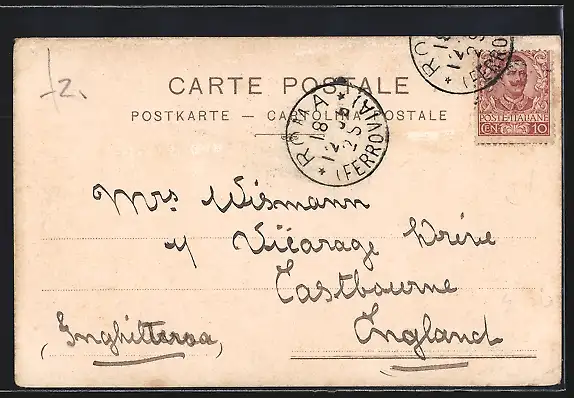 CARTE POSTALE
POSTKARTE — CARTOLINA POSTALE
ROMA
(FERROVIA)
18
12
25
ROMA
(FERROVIA)
POSTE ITALIANE
CEN 10
Mrs Wismann
4 Vicarage Drive
Eastbourne
England
(Inghilterra)